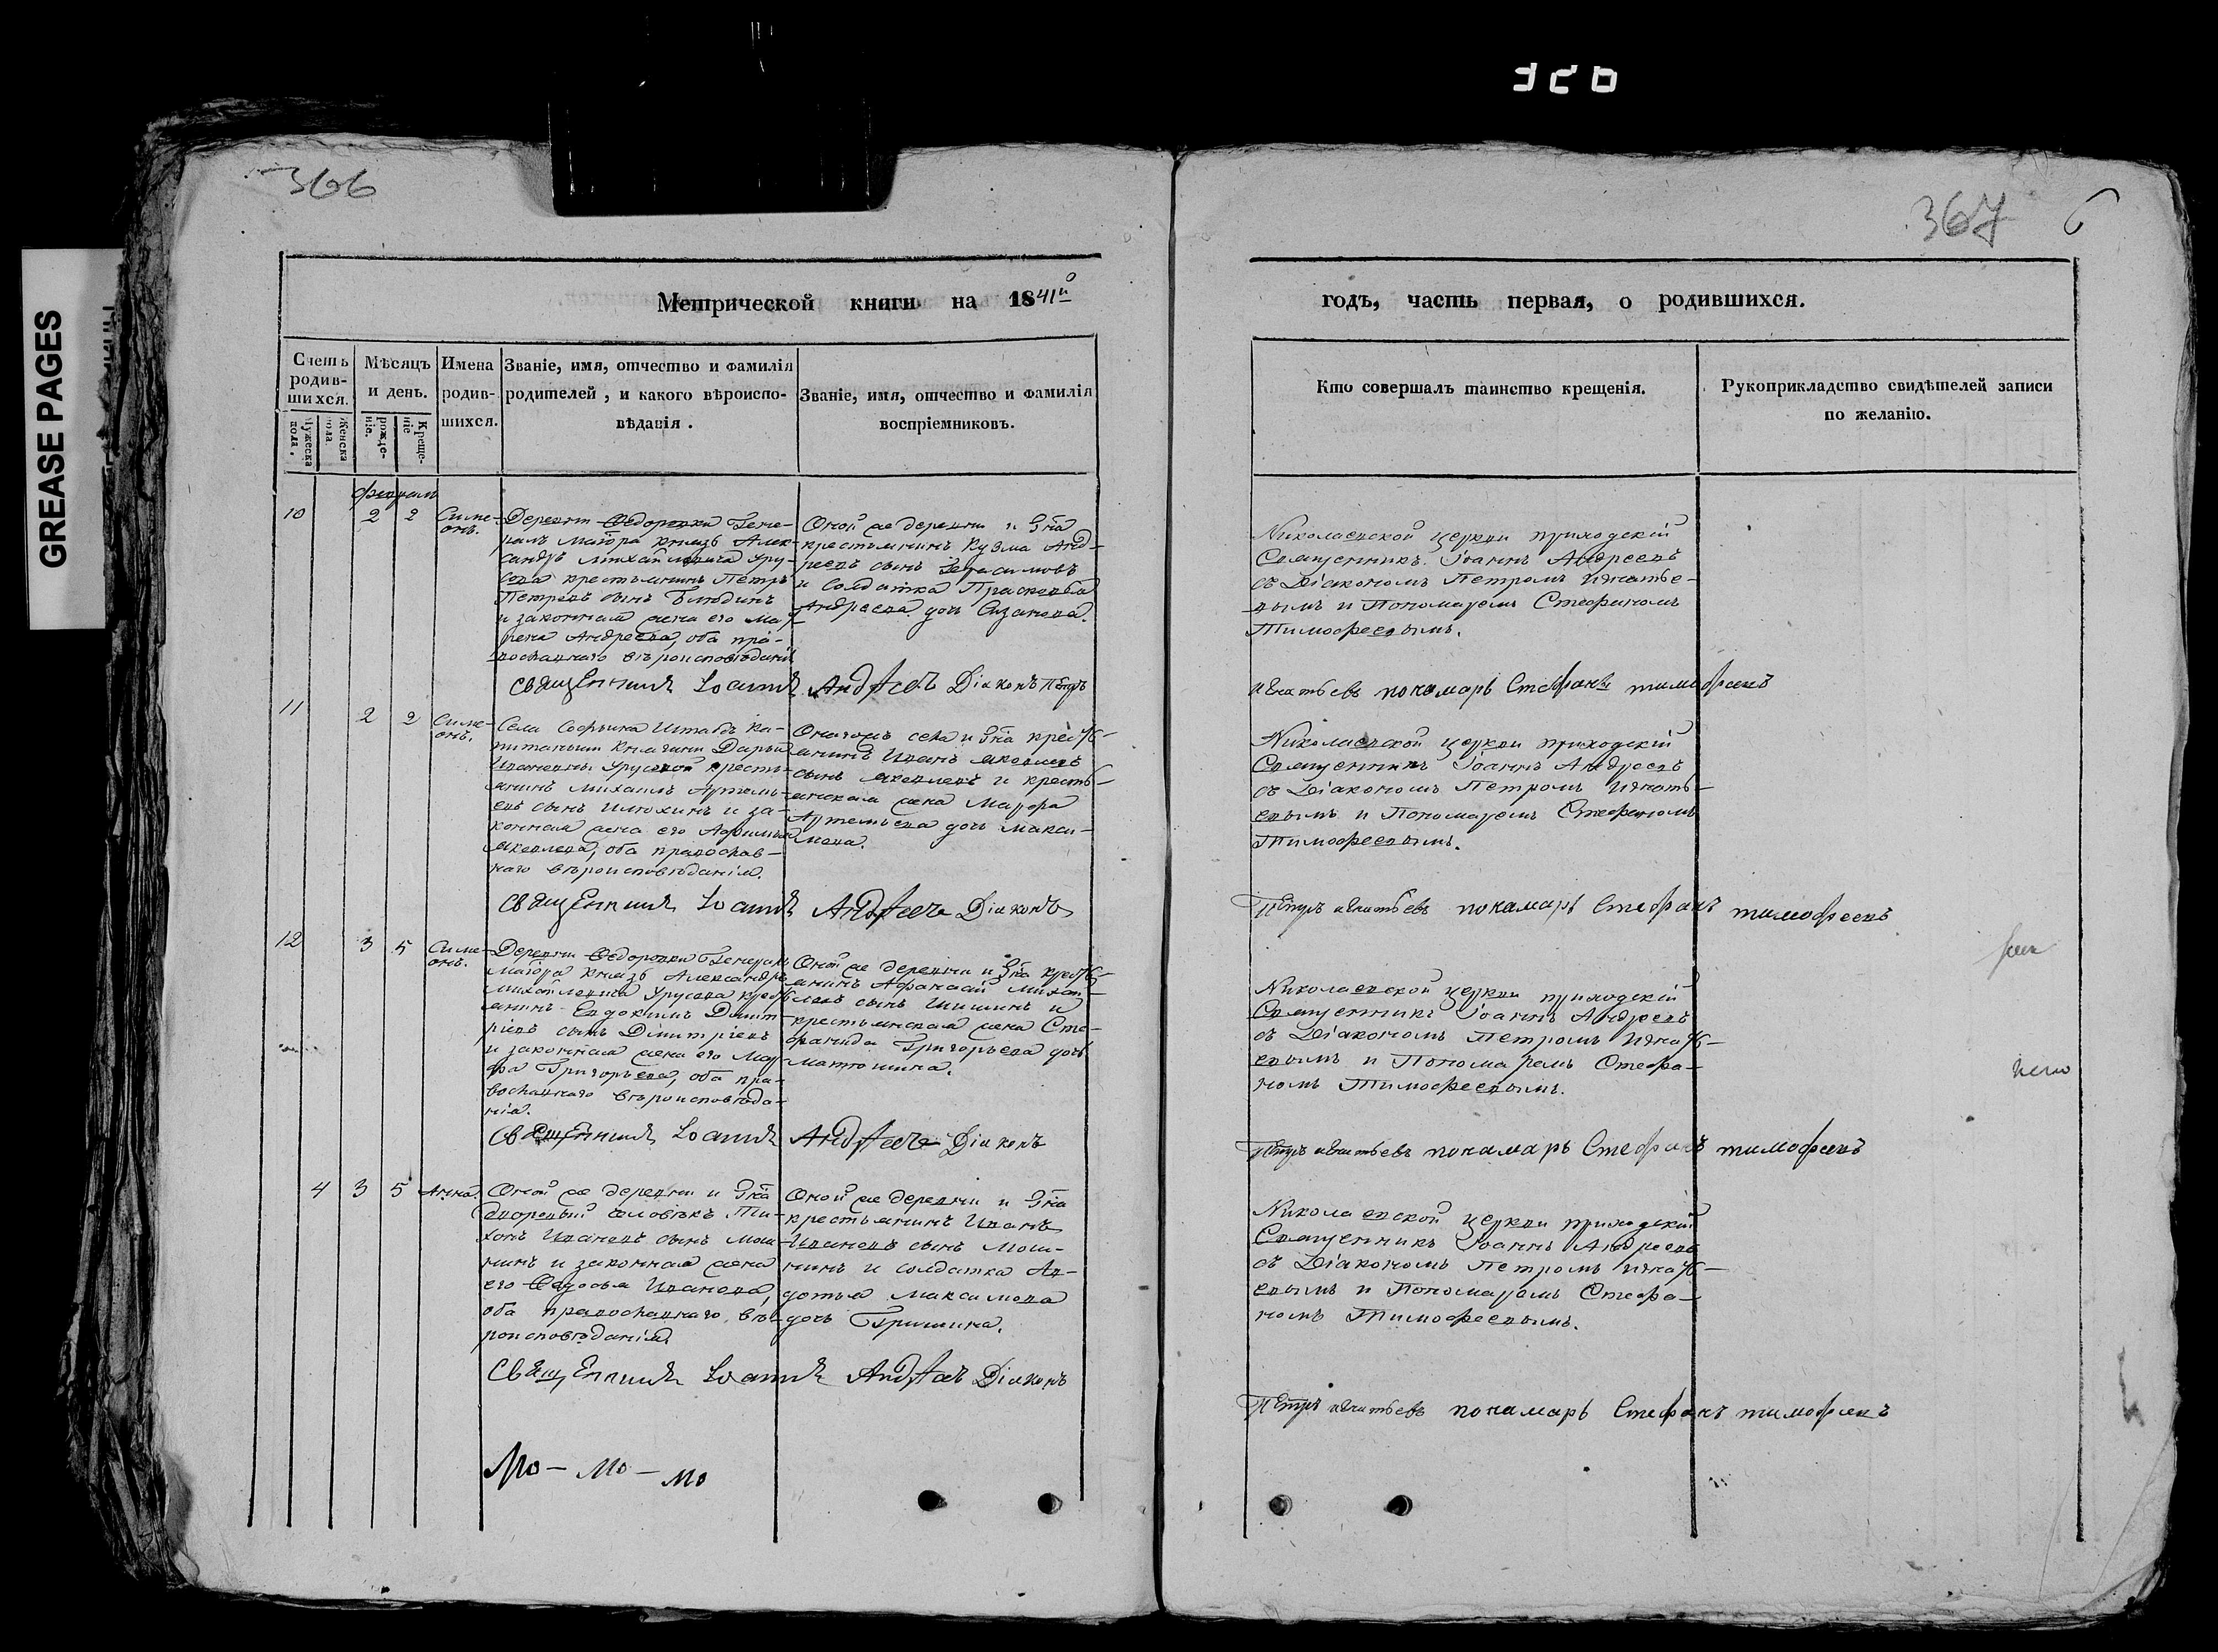 GREASE PAGES
366
367 6
Метрической книги на 1841й
годъ, часть первая, о родившихся.
Счетъ родив-шихся.
Мѣсяцъ и день.
Имена родив-шихся.
Званіе, имя, отчество и фамилія
родителей, и какого вѣроиспо-
вѣданія.
Званіе, имя, отчество и фамилія
воспріемниковъ.
Кто совершалъ таинство крещенія.
Рукоприкладство свидѣтелей записи
по желанію.
Мужеска пола.
Женска пола.
рожде-ніе.
Креще-ніе
10
2 2
Симе-
онъ.
Деревни Ѳедоровки Гене-
ралъ маіора князь Алек-
сандръ Михайловича Уру-
сова крестьянинъ Петръ
Петровъ сынъ
и законная жена его Мат-
рена Андреева, оба пра-
вославнаго вѣроисповѣданія
Оной же деревни и Г-на
крестьянинъ Кузма Анд-
реевъ сынъ Герасимовъ
и солдатка Прасковья
Андреева дочь
Николаевской церкви приходскій
Священникъ Іоаннъ Андреевъ
съ Діакономъ Петромъ Игнатье-
вымъ и Пономаремъ Стефаномъ
Тимофеевымъ.
Священникъ Іоаннъ Андреевъ Діаконъ Петръ
Игнатьевъ понамарь Стефанъ тимофеевъ
11
2 2
Симе-
онъ.
Села Софьина Штабъ Ка-
питанши Княгини Дарьи
Ивановны Урусовой кресть-
янинъ Михаилъ Артемь-
евъ сынъ Илюхинъ и за-
конная жена его Афимья
Яковлева, оба православ-
наго вѣроисповѣданія.
Оногожъ села и Г-на кресть-
янинъ Иванъ Яковлевъ
сынъ Яковлевъ и кресть-
янская жена Марфа
Артемьева дочь Макси-
мова.
Николаевской церкви приходскій
Священникъ Іоаннъ Андреевъ
съ Діакономъ Петромъ Игнать-
евымъ и Пономаремъ Стефаномъ
Тимофеевымъ.
Священникъ Іоаннъ Андреевъ Діаконъ
Петръ игнатьевъ понамарь Стефанъ тимофеевъ
12
3 5
Симе-
онъ.
Деревни Ѳедоровки Генералъ
Маіора Князь Александра
Михайловича Урусова кресть
янинъ Евдокимъ Димит-
ріевъ сынъ Димитріевъ
и законная жена его Мар
фа Григорьева, оба пра-
вославнаго вѣроисповѣда-
нія.
Оной же деревни и Г-на кресть-
янинъ Афанасій Михай-
ловъ сынъ Шишинъ и
крестьянская жена Сте-
фанида Григорьева дочь
Матюшина.
Николаевской церкви приходскій
Священникъ Іоаннъ Андреевъ
съ Діакономъ Петромъ Игнать-
евымъ и Пономаремъ Стефа-
номъ Тимофеевымъ.
Священникъ Іоаннъ Андреевъ Діаконъ
Петръ игнатьевъ понамарь Стефанъ тимофеевъ
4
3 5
Анна.
Оной же деревни и Г-на
дворовый человѣкъ Ти-
хонъ Ивановъ сынъ Мош-
нинъ и законная жена
его Ѳедосья Иванова,
оба православнаго вѣ-
роисповѣданія.
Оной же деревни и Г-на
крестьянинъ Иванъ
Ивановъ сынъ Мош-
нинъ и солдатка Ав-
дотья Максимова
дочь Гришина.
Николаевской церкви приходскій
Священникъ Іоаннъ Андреевъ
съ Діакономъ Петромъ Игнать-
евымъ и Пономаремъ Стефа-
номъ Тимофеевымъ.
Священникъ Іоаннъ Андреевъ Діаконъ
Петръ игнатьевъ понамарь Стефанъ тимофеевъ